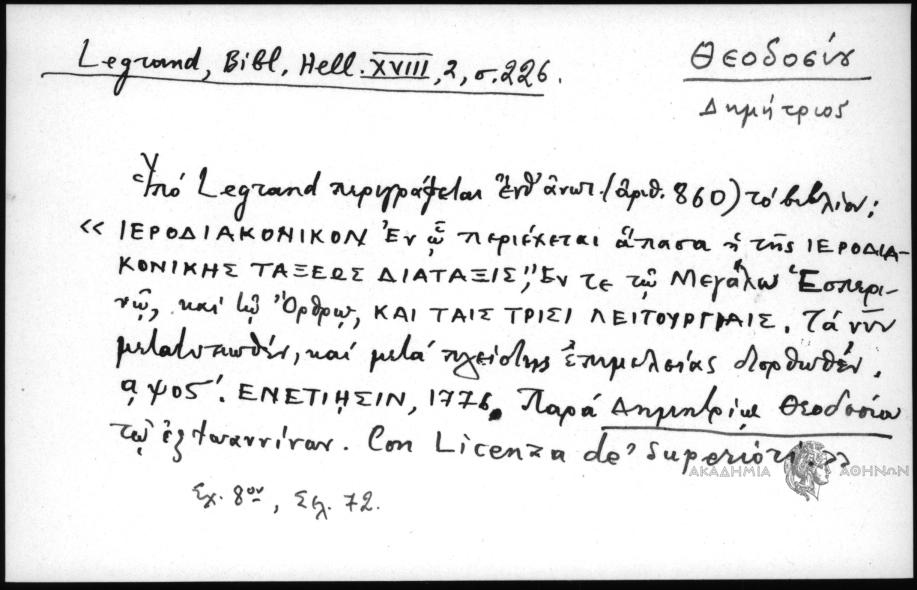 Legrand, Bibl. Hell. XVIII, 2, σ. 226.
Θεοδοσίου
Δημήτριος
Ὑπό Legrand περιγράφεται ἐνθ' ἀνωτ. (ἀριθ. 860) τό βιβλίον:
« ΙΕΡΟΔΙΑΚΟΝΙΚΟΝ Ἐν ᾧ περιέχεται ἅπασα ἡ τῆς ΙΕΡΟΔΙΑ-
ΚΟΝΙΚΗΣ ΤΑΞΕΩΣ ΔΙΑΤΑΞΙΣ, Ἔν τε τῷ Μεγάλῳ Ἑσπερι-
νῷ, καί τῷ Ὄρθρῳ, ΚΑΙ ΤΑΙΣ ΤΡΙΣΙ ΛΕΙΤΟΥΡΓΙΑΙΣ. Τά νῦν
μετατυπωθέν, καί μετά πλείστης ἐπιμελείας διορθωθέν.
͵αψοϛ΄. ΕΝΕΤΙῌΣΙΝ, 1776. Παρά Δημητρίῳ Θεοδοσίου
τῷ ἐξ Ἰωαννίνων. Con Licenza de' Superiori. »
Σχ. 8ον, Σελ. 72.
ΑΚΑΔΗΜΙΑ ΑΘΗΝΩΝ